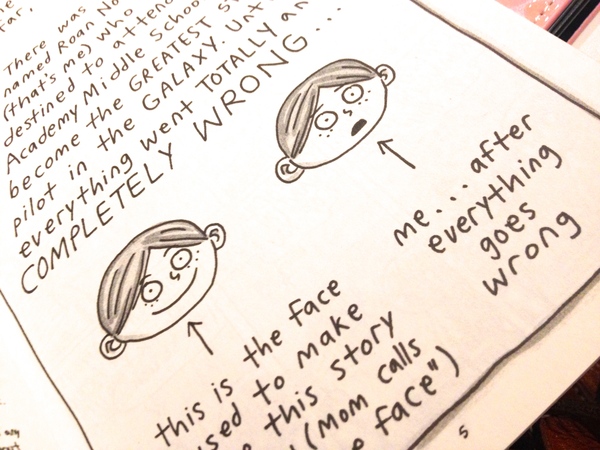 far,
There was
named Roan No
(that's me) who
destined to attend
Academy Middle School
become the GREATEST s
pilot in the GALAXY. Unt
everything went TOTALLY an
COMPLETELY WRONG...
me... after
everything
goes
wrong
this is the face
used to make
this story
(Mom calls
face")
5